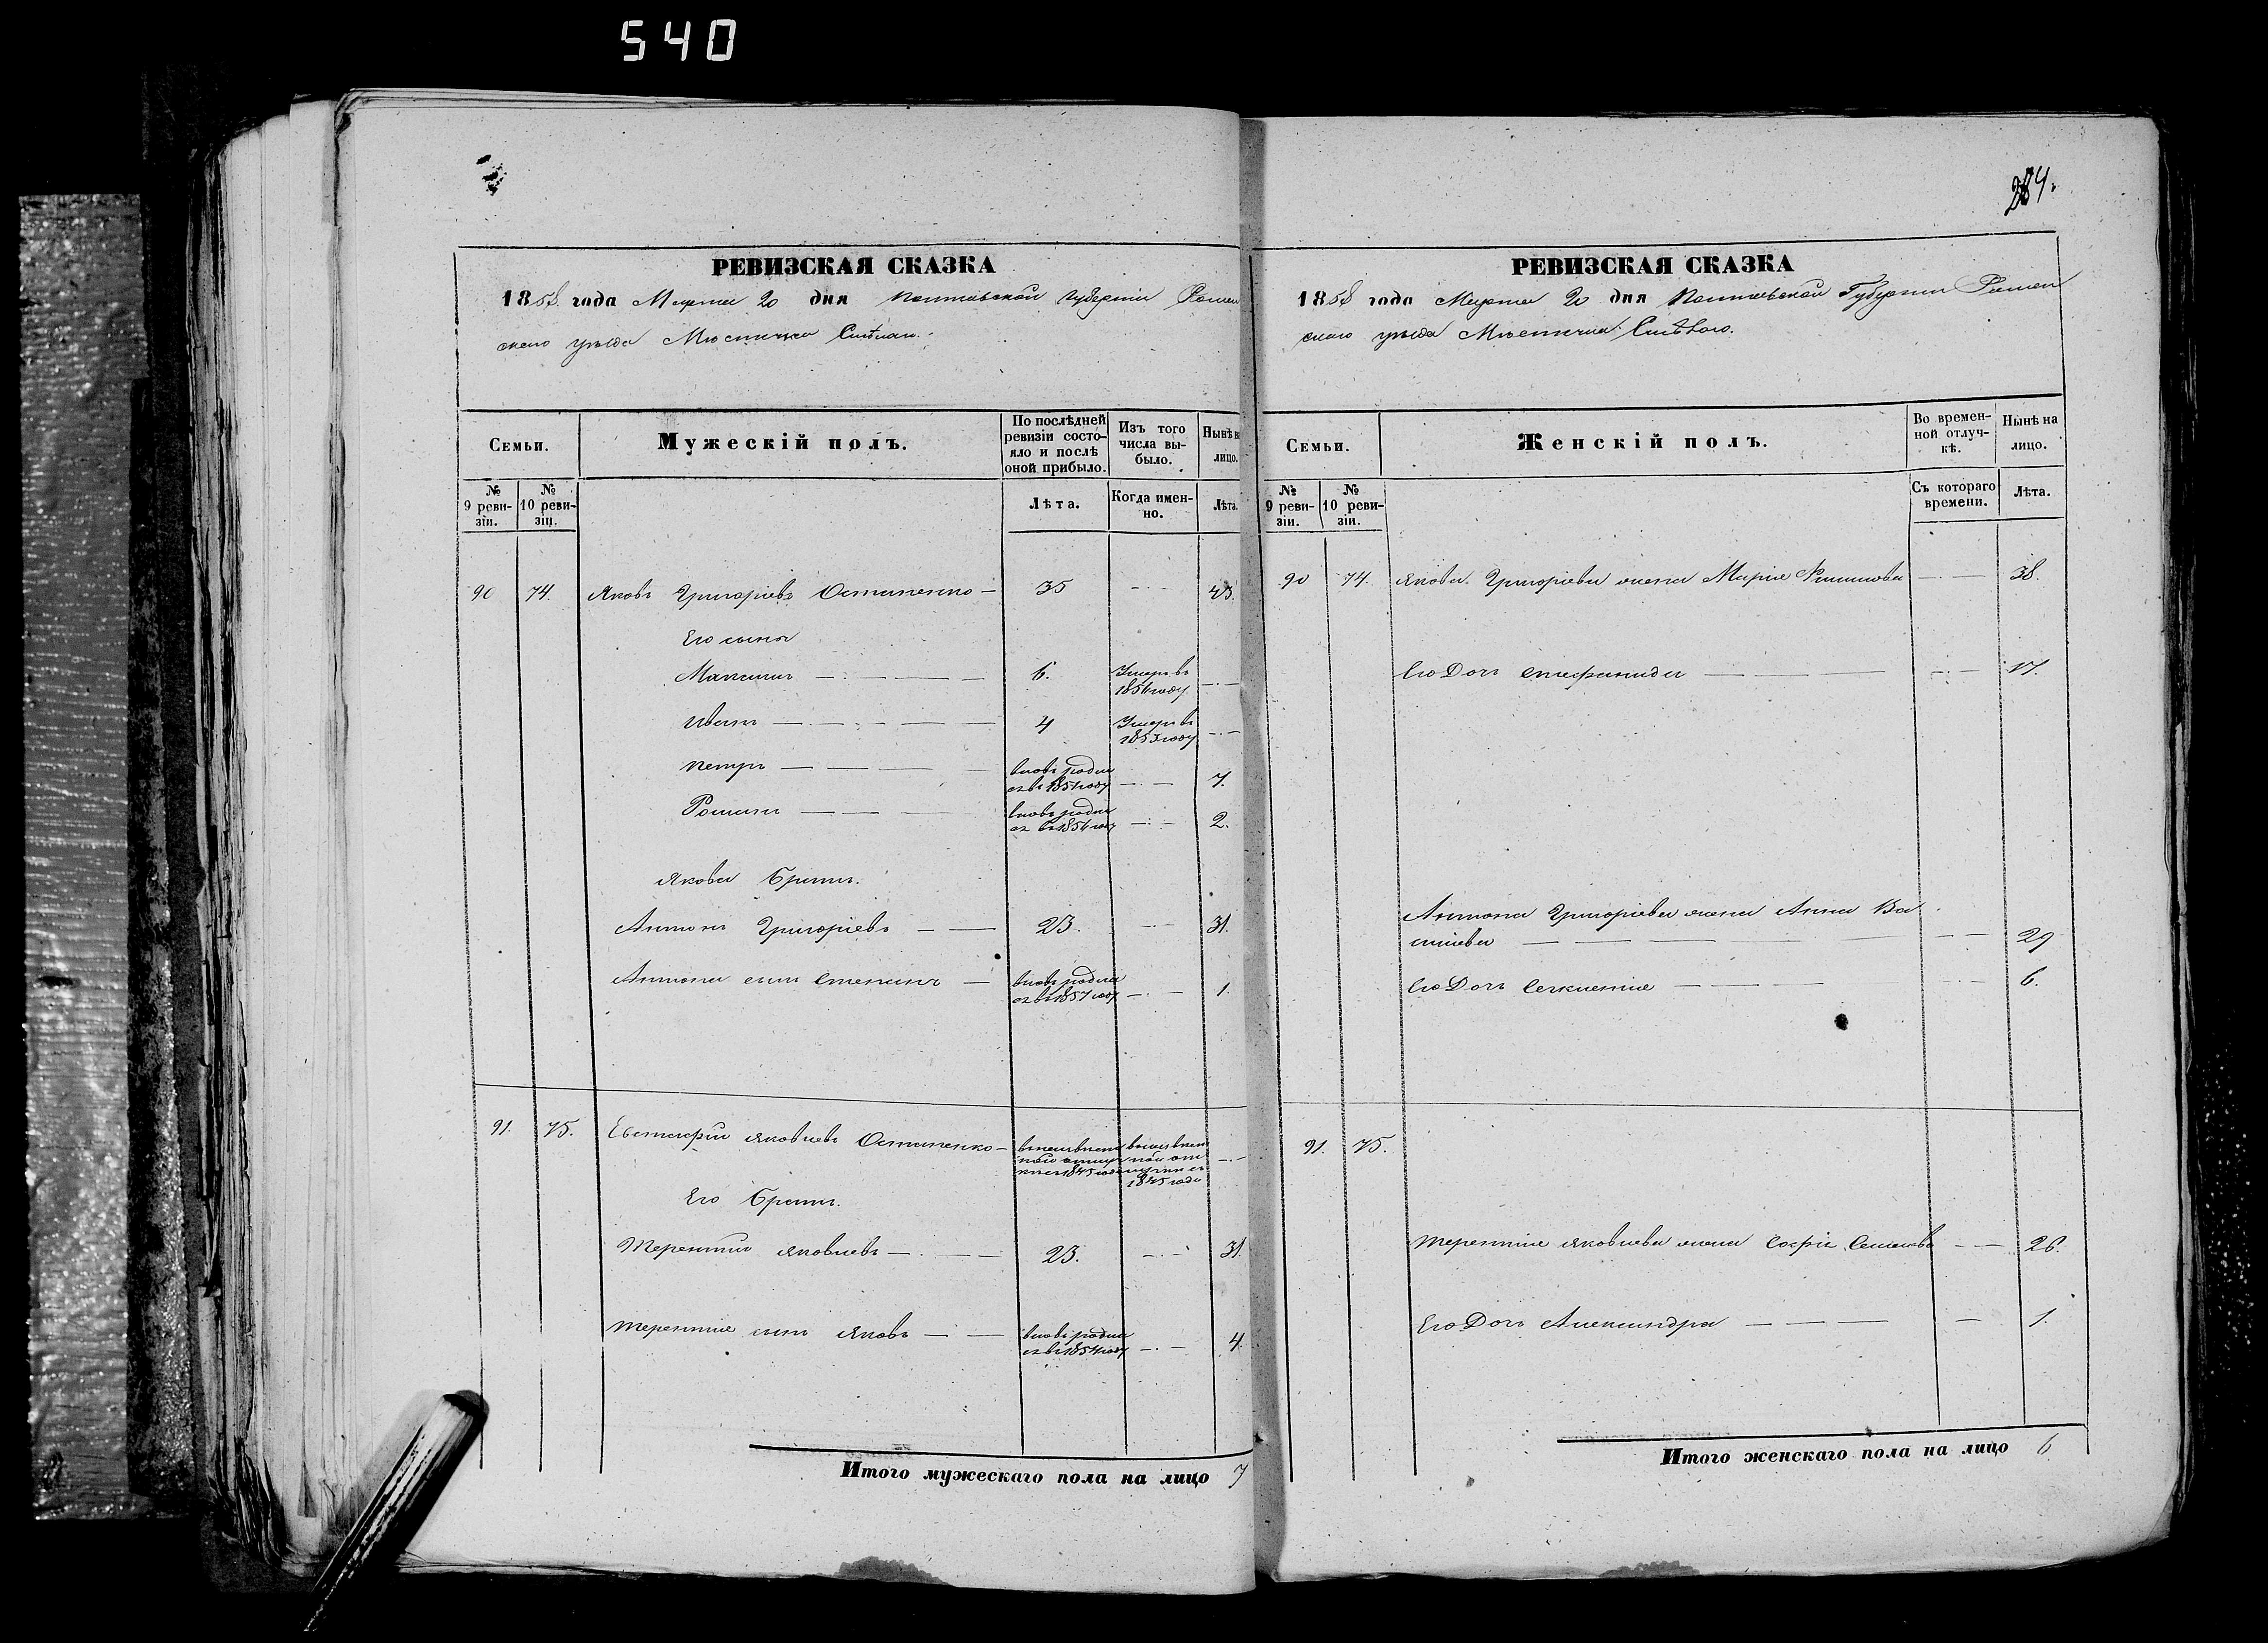 540
284.
РЕВИЗСКАЯ СКАЗКА
1858 года Марта 20 дня Полтавской Губерніи Ромен
скаго уѣзда Мѣстечка
Семьи.
Мужескій полъ.
По послѣдней ревизіи состояло и послѣ оной прибыло.
Изъ того числа выбыло.
Нынѣ на лицо.
№ 9 ревизіи.
№ 10 ревизіи.
Лѣта.
Когда именно.
Лѣта.
90 74. Яковъ Григоріевъ Остапенко — 35 — 43.
Его сыны
Максимъ — 6. Умеръ въ 1856 году —
Иванъ — 4 Умеръ въ 1853 году —
Петръ — вновь родился въ 1851 году — 7.
Романъ — вновь родился въ 1856 году — 2.
Якова братъ.
Антонъ Григоріевъ — 23. — 31.
Антона сынъ Степанъ — вновь родился въ 1857 году — 1.
91. 75. Евстафій Яковлевъ Остапенко — 1845 года 1845 года —
Его братъ.
Терентій Яковлевъ — 23. — 31.
Терентія сынъ Яковъ — вновь родился въ 1854 году — 4.
Итого мужескаго пола на лицо 7
РЕВИЗСКАЯ СКАЗКА
1858 года Марта 20 дня Полтавской Губерніи Ромен
скаго уѣзда Мѣстечка
Семьи.
Женскій полъ.
Во временной отлучкѣ.
Нынѣ на лицо.
№ 9 ревизіи.
№ 10 ревизіи.
Съ котораго времени.
Лѣта.
90 74. Якова Григоріева жена Марія — 38.
Его Дочь Епифанида — 17.
Антона Григоріева жена Анна Ва
силіева — 29
Его Дочь — 6.
91. 75.
Терентія Яковлева жена Софія — 26.
Его Дочь Александра — 1.
Итого женскаго пола на лицо 6